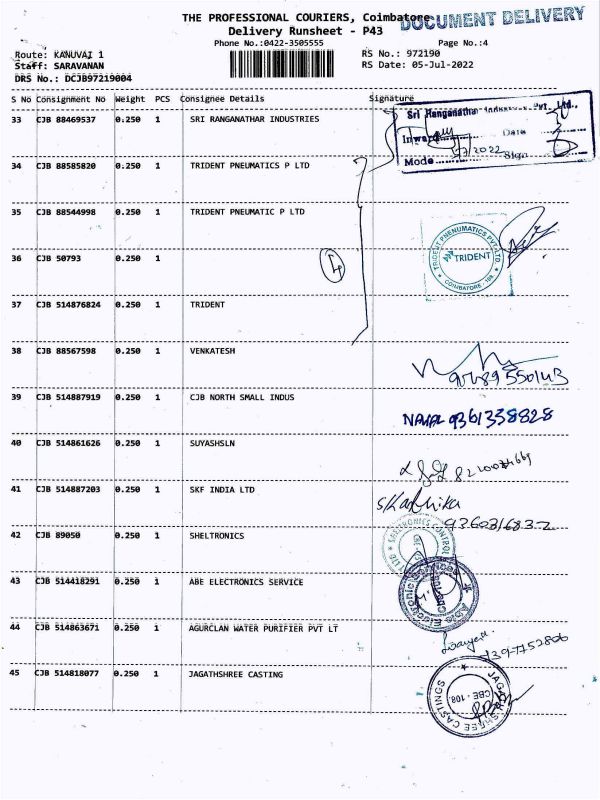 THE PROFESSIONAL COURIERS, Coimbatore
DOCUMENT DELIVERY
Delivery Runsheet - P43
Phone No.:0422-3505555
Page No.:4
Route: KANUVAI 1
RS No.: 972190
Staff: SARAVANAN
RS Date: 05-Jul-2022
DRS No.: DCJB97219004
S No Consignment No Weight PCS Consignee Details Signature
33 CJB 88469537 0.250 1 SRI RANGANATHAR INDUSTRIES
Sri Ranganathar Pvt. Ltd.,
Inward Date
Mode Sign
34 CJB 88585820 0.250 1 TRIDENT PNEUMATICS P LTD
35 CJB 88544998 0.250 1 TRIDENT PNEUMATIC P LTD
TRIDENT PNEUMATICS PVT.LTD.
TRIDENT
COIMBATORE
36 CJB 50793 0.250 1
37 CJB 514876824 0.250 1 TRIDENT
38 CJB 88567598 0.250 1 VENKATESH
39 CJB 514887919 0.250 1 CJB NORTH SMALL INDUS
9361338828
40 CJB 514861626 0.250 1 SUYASHSLN
41 CJB 514887203 0.250 1 SKF INDIA LTD
9360316832
42 CJB 89050 0.250 1 SHELTRONICS
43 CJB 514418291 0.250 1 ABE ELECTRONICS SERVICE
44 CJB 514863671 0.250 1 AGURCLAN WATER PURIFIER PVT LT
45 CJB 514818077 0.250 1 JAGATHSHREE CASTING
JAGATHSHREE CASTINGS
CBE - 108.